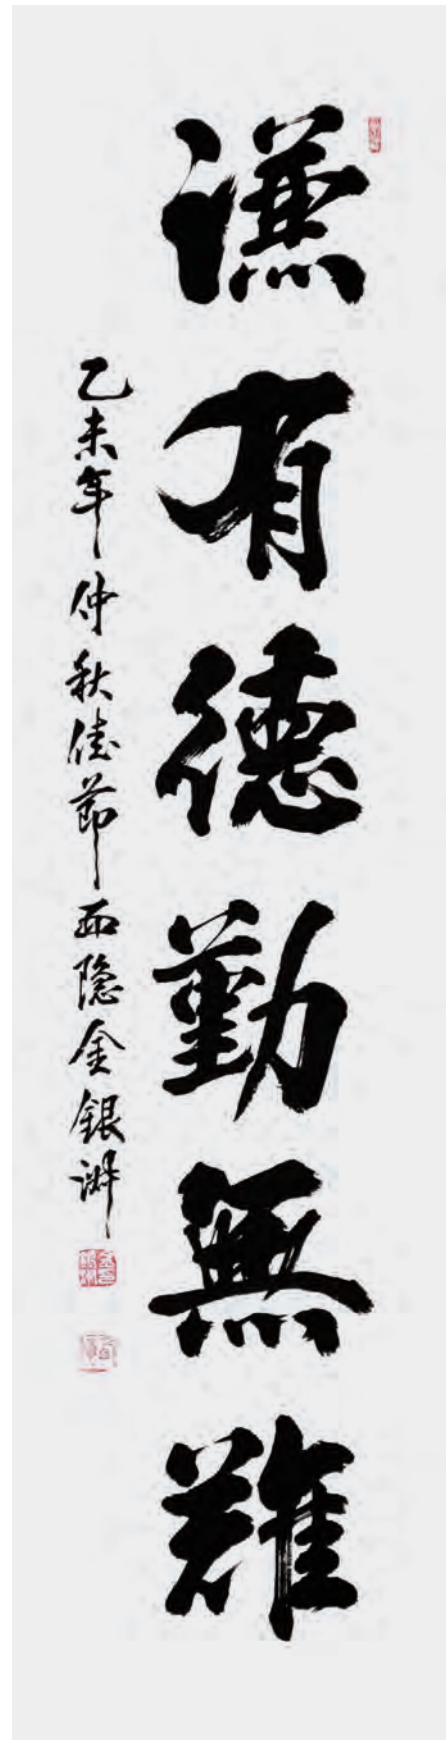 謙有德勤無難
乙未年仲秋佳節 西隐金銀洲